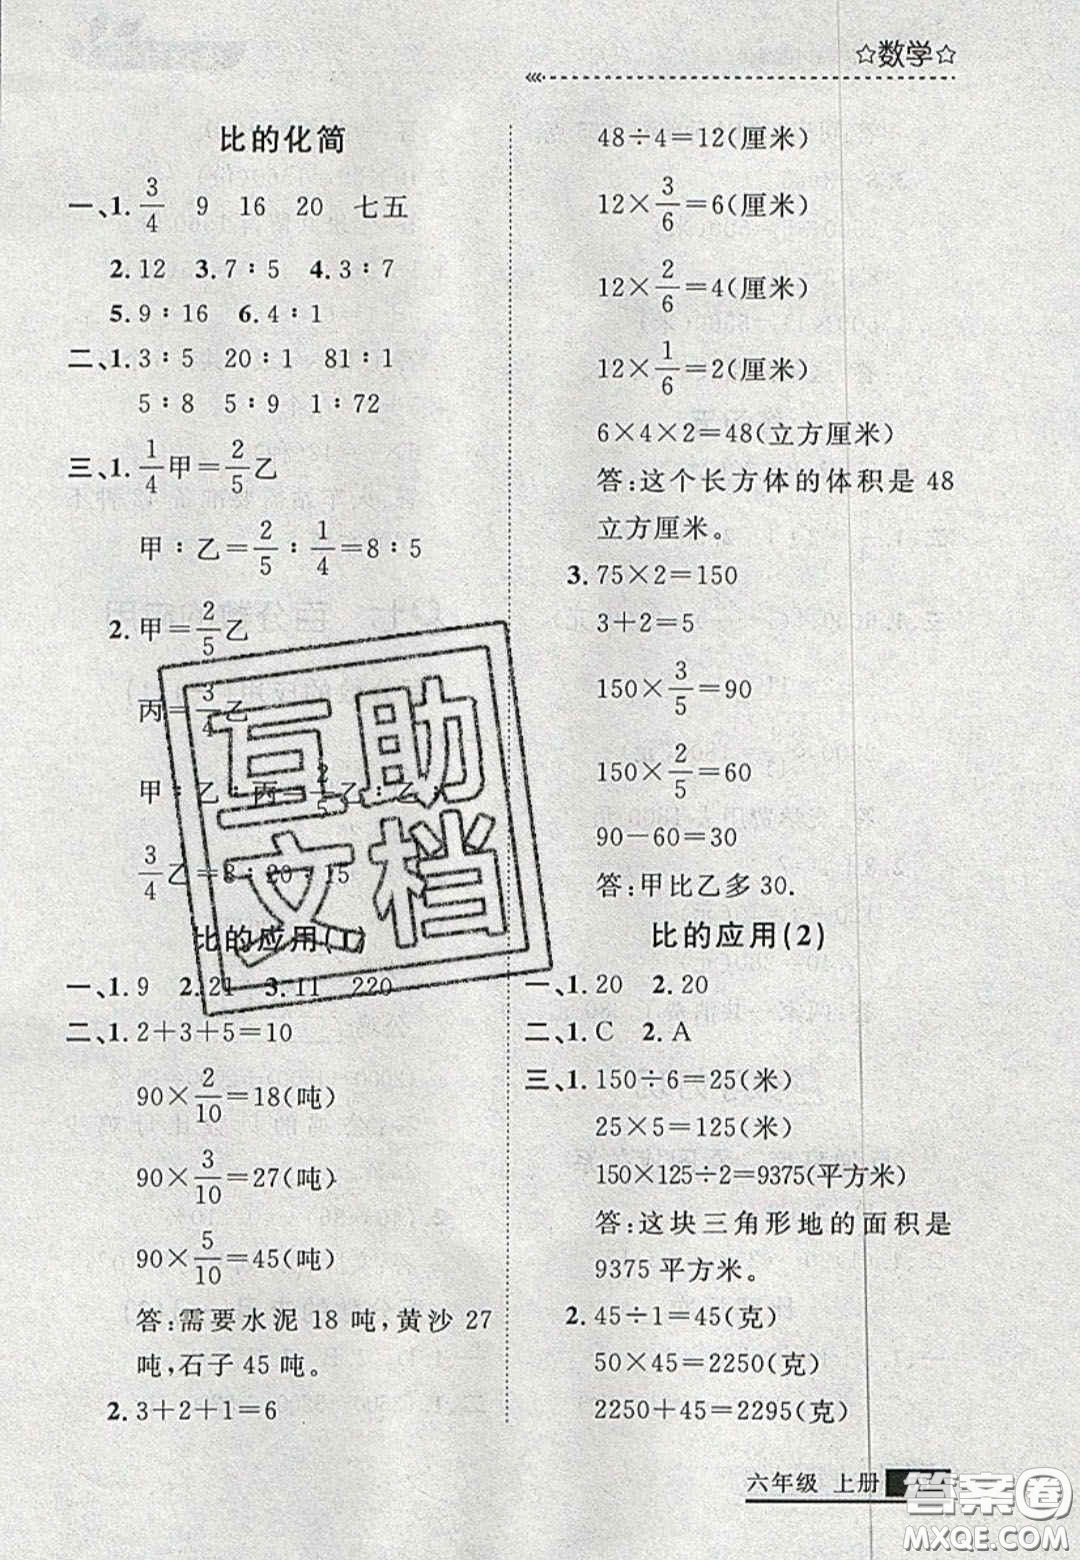 ☆数学☆
比的化简
一、1. 3/4 9 16 20 七五
2. 12 3. 7∶5 4. 3∶7
5. 9∶16 6. 4∶1
二、1. 3∶5 20∶1 81∶1
5∶8 5∶9 1∶72
三、1. 1/4甲=2/5乙
甲∶乙=2/5∶1/4=8∶5
2. 甲=2/5乙
丙=3/4乙
甲∶乙∶丙=2/5乙∶乙∶
3/4乙=8∶20∶15
比的应用(1)
一、1. 9 2. 21 3. 11 220
二、1. 2+3+5=10
90×2/10=18(吨)
90×3/10=27(吨)
90×5/10=45(吨)
答:需要水泥 18 吨,黄沙 27
吨,石子 45 吨。
2. 3+2+1=6
48÷4=12(厘米)
12×3/6=6(厘米)
12×2/6=4(厘米)
12×1/6=2(厘米)
6×4×2=48(立方厘米)
答:这个长方体的体积是 48
立方厘米。
3. 75×2=150
3+2=5
150×3/5=90
150×2/5=60
90-60=30
答:甲比乙多 30.
比的应用(2)
一、1. 20 2. 20
二、1. C 2. A
三、1. 150÷6=25(米)
25×5=125(米)
150×125÷2=9375(平方米)
答:这块三角形地的面积是
9375 平方米。
2. 45÷1=45(克)
50×45=2250(克)
2250+45=2295(克)
六年级 上册
互助
文档
答案圈
MXQE.COM